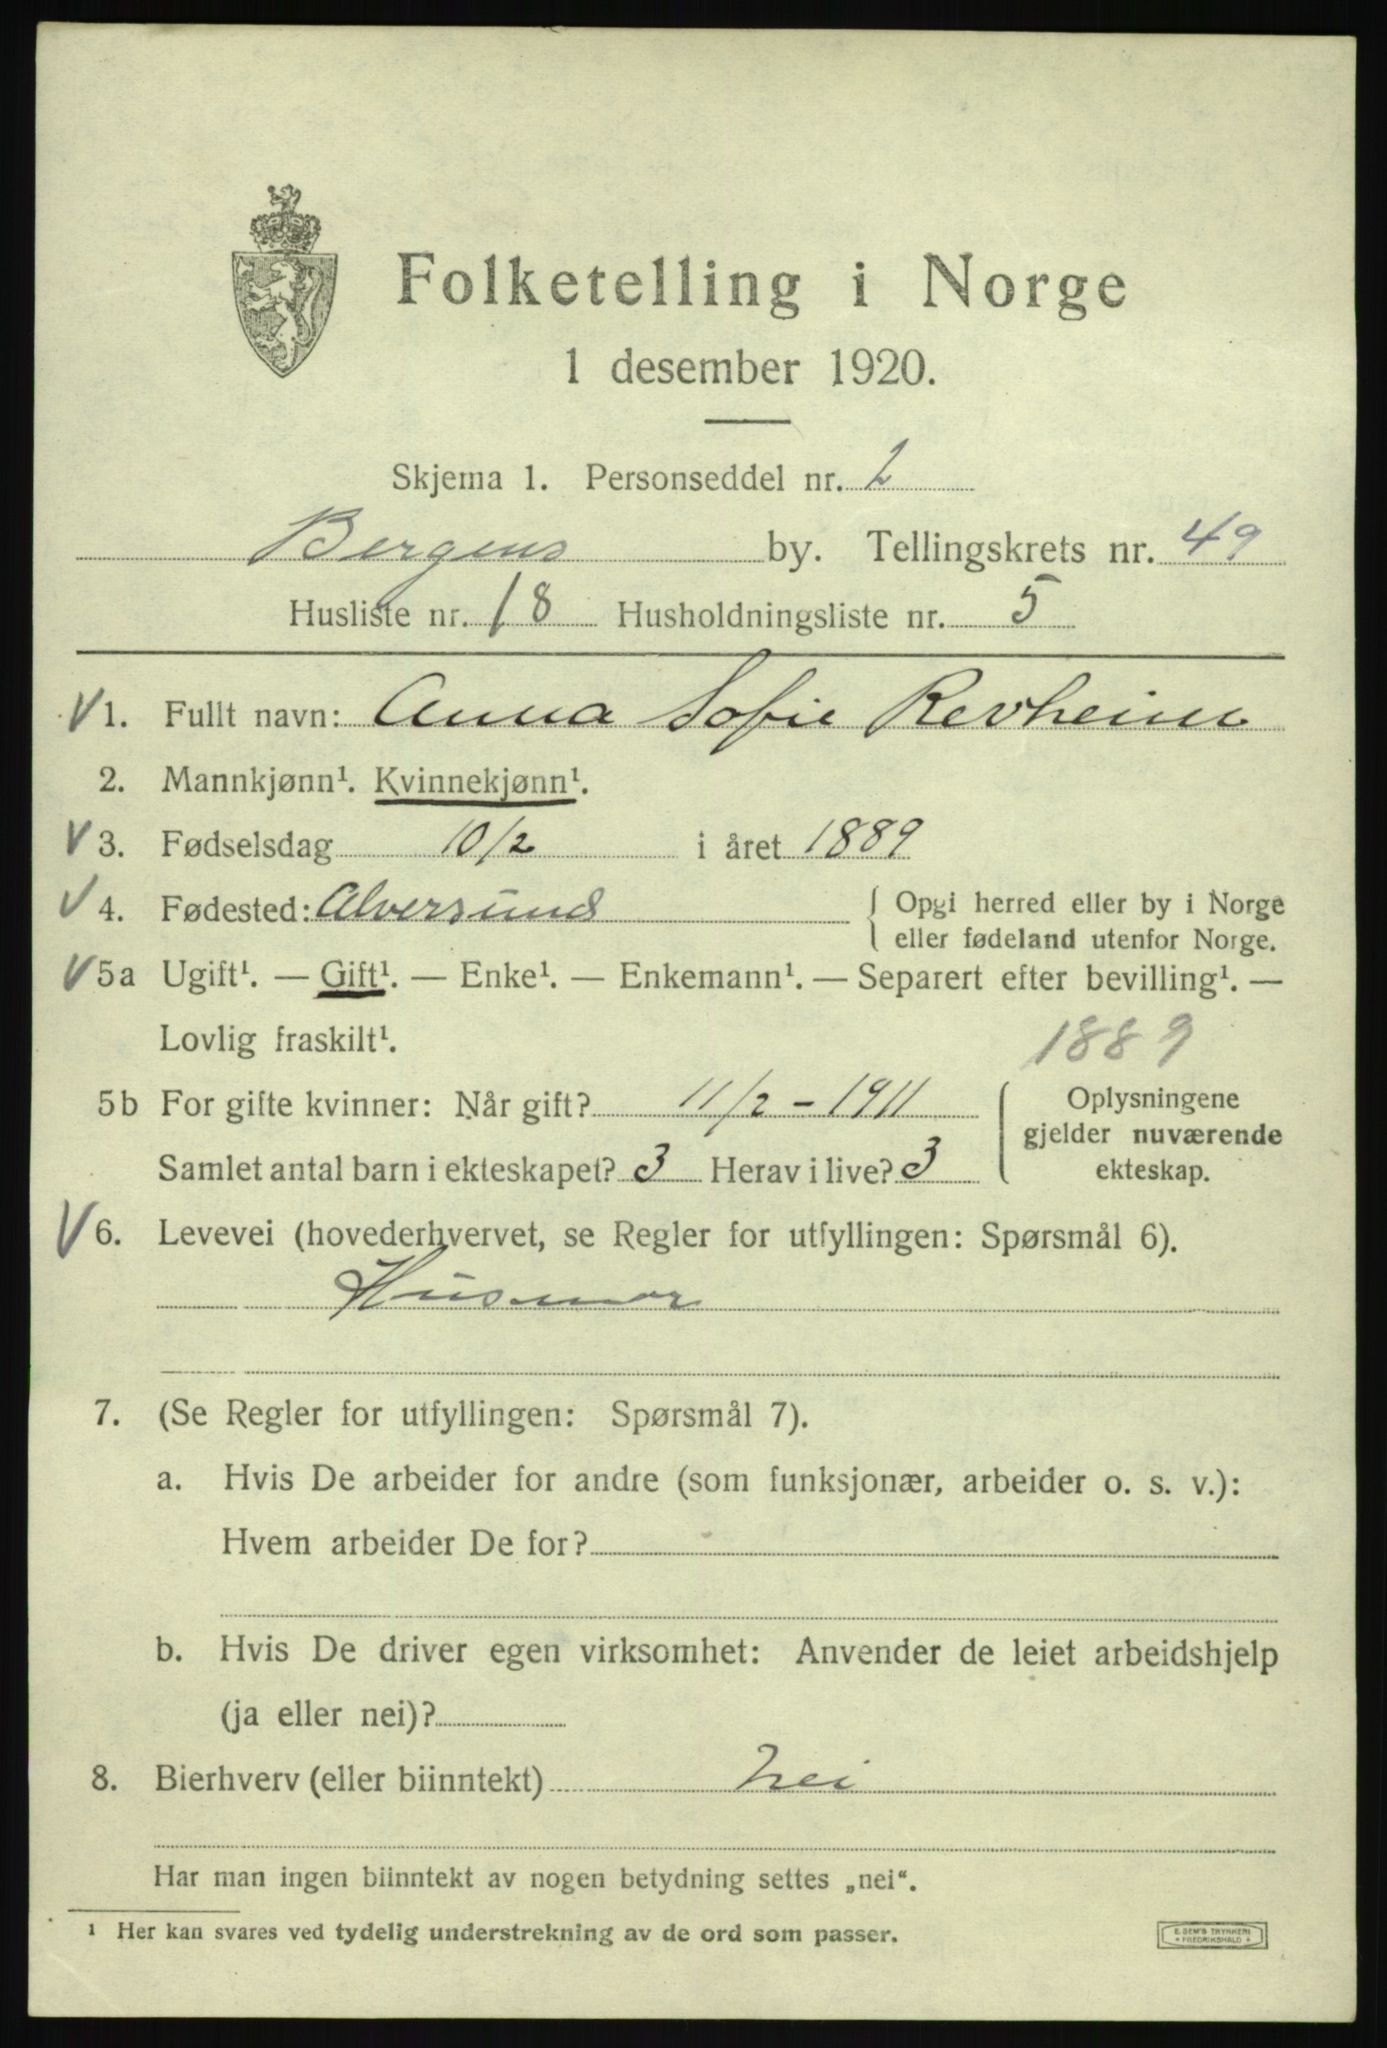 Folketelling i Norge
1 desember 1920.
Skjema 1. Personseddel nr. 2
Bergens by. Tellingskrets nr. 49
Husliste nr. 18 Husholdningsliste nr. 5
V 1. Fullt navn: Anna Sofie Revheim
2. Mannkjønn¹. Kvinnekjønn¹.
V 3. Fødselsdag 10/2 i året 1889
V 4. Fødested: Alversund { Opgi herred eller by i Norge
eller fødeland utenfor Norge.
V 5a Ugift¹. — Gift¹. — Enke¹. — Enkemann¹. — Separert efter bevilling¹. —
Lovlig fraskilt¹. 1889
5b For gifte kvinner: Når gift? 11/2 - 1911 { Oplysningene
gjelder nuværende
Samlet antal barn i ekteskapet? 3 Herav i live? 3 ekteskap.
V 6. Levevei (hovederhvervet, se Regler for utfyllingen: Spørsmål 6).
Husmor
7. (Se Regler for utfyllingen: Spørsmål 7).
a. Hvis De arbeider for andre (som funksjonær, arbeider o. s. v.):
Hvem arbeider De for?
b. Hvis De driver egen virksomhet: Anvender de leiet arbeidshjelp
(ja eller nei)?
8. Bierhverv (eller biinntekt) nei
Har man ingen biinntekt av nogen betydning settes „nei“.
¹ Her kan svares ved tydelig understrekning av de ord som passer.
E. SEM'S TRYKKERI
* FREDRIKSHALD *